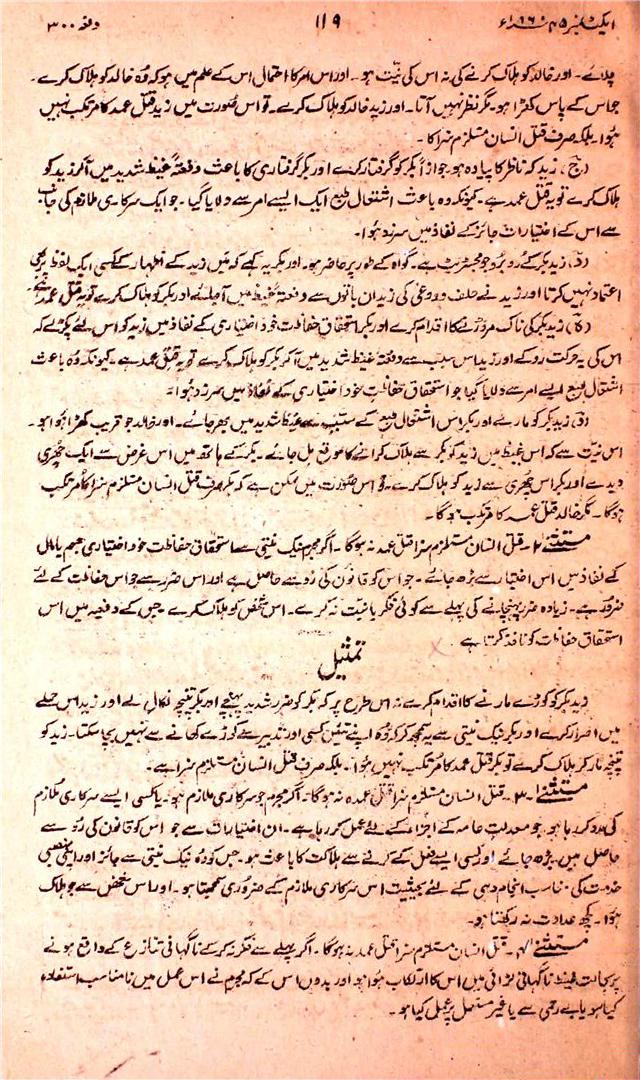 ایکٹ نمبر ۴۵ ۱۸۶۰ء ۱۱۹ دفعہ ۳۰۰
چلائے۔ اور خالد کو ہلاک کرنے کی نہ اس کی نیّت ہو۔ اور اس امر کا احتمال اس کے علم میں ہو کہ وُہ خالد کو ہلاک کرے۔
جو اس کے پاس کھڑا ہو۔ مگر نظر نہیں آتا۔ اور زید خالد کو ہلاک کرے۔ تو اس صُورت میں زید قتل عمد کا مرتکب نہیں
ہُوا۔ بلکہ صرف قتل انسان مستلزم سزا کا۔
(ج)، زید کہ ناظر کا پیادہ ہو جوازاً بکر کو گرفتار کرے اور بکر گرفتاری کا باعث دفعتہً غیظ شدید میں آکر زید کو
ہلاک کرے تو یہ قتل عمد ہے۔ کیونکہ وہ باعث اشتعال طبع ایک ایسے امر سے دلایا گیا۔ جو ایک سرکاری ملازم کی جانب
سے اس کے اختیارات جائز کے نفاذ میں سرزد ہُوا۔
(د)، زید بکر کے رُوبرو جو مجسٹریٹ ہے۔ گواہ کے طور پر حاضر ہو۔ اور بکر یہ کہے کہ میں زید کے اظہار کے کسی ایک لفظ پر بھی
اعتماد نہیں کرتا اور زید نے حلف دروغی کی زید ان باتوں سے دفعتہً غیظ میں آجائے اور بکر کو ہلاک کرے تو یہ قتل عمد ہے۔
(ہ) زید بکر کی ناک مروڑنے کا اقدام کرے اور بکر استحقاق حفاظت خود اختیاری کے نفاذ میں زید کو اس لئے پکڑے کہ
اس کی یہ حرکت روکے اور زید اس سبب سے دفعتہً غیظ شدید میں آکر بکر کو ہلاک کرے تو یہ قتل عمد ہے۔ کیونکہ وُہ باعث
اشتعال طبع ایسے امر سے دلایا گیا جو استحقاق حفاظت خود اختیاری کے نفاذ میں سرزد ہُوا۔
(و) زید بکر کو مارے اور بکر اس اشتعال طبع کے سبب سے غیظ شدید میں بھر جائے۔ اور خالد جو قریب کھڑا ہُوا ہو۔
اس نیّت سے کہ اس غیظ میں زید کو بکر سے ہلاک کرانے کا موقع مل جائے۔ بکر کے ہاتھ میں اس غرض سے ایک چھُری
دیدے اور بکر اس چھری سے زید کو ہلاک کرے۔ تو اس صورت میں ممکن ہے کہ بکر صرف قتل انسان مستلزم سزا کا مرتکب
ہوگا۔ مگر خالد قتل عمد کا مرتکب ہوگا۔
مستثنےٰ ۲۔ قتل انسان مستلزم سزا قتل عمد نہ ہوگا۔ اگر مجرم نیک نیتی سے استحقاق حفاظت خود اختیاری جسم یا مال
کے نفاذ میں اس اختیار سے بڑھ جائے۔ جو اس کو قانون کی رُو سے حاصل ہے اور اس ضرر سے جو اس حفاظت کے لئے
ضرور ہے۔ زیادہ ضرر پہنچانے کی پہلے سے کوئی فکر یا نیت نہ کرے۔ اس شخص کو ہلاک کرے جس کے دفعیہ میں اس
استحقاق حفاظت کو نافذ کرتا ہے
تمثیل
زید بکر کو کوڑے مارنے کا اقدام کرے نہ اس طرح پر کہ بکر کو ضرر شدید پہنچے اور بکر تپنچہ نکال لے اور زید اس حملے
میں اصرار کرے اور بکر نیک نیتی سے یہ سمجھ کر کہ وُہ اپنے تئیں کسی اور تدبیر سے کوڑے کھانے سے نہیں بچا سکتا۔ زید کو
تپنچہ مار کر ہلاک کرے تو بکر قتل عمد کا مُرتکب نہیں ہُوا۔ بلکہ صرف قتل انسان مستلزم سزا ہے۔
مستثنےٰ ۳۔ قتل انسان مستلزم سزا قتل عمد نہ ہوگا۔ اگر مجرم جو سرکاری ملازم ہو۔ یا کسی ایسے سرکاری ملازم
کی مدد کر رہا ہو۔ جو معدلت عامہ کے اجراء کے لئے عمل کر رہا ہے۔ ان اختیارات سے جو اس کو قانون کی رُو سے
حاصل ہیں بڑھ جائے اور کسی ایسے فعل کے کرنے سے ہلاکت کا باعث ہو۔ جس کو وُہ نیک نیتی سے جائز اور اپنی منصبی
خدمت کی مناسب انجام دہی کے لئے بحیثیت اس سرکاری ملازم کے ضروری سمجھتا ہو۔ اور اس شخص سے جو ہلاک
ہُوا۔ کچھ عداوت نہ رکھتا ہو۔
مستثنےٰ ۴۔ قتل انسان مستلزم سزا قتل عمد نہ ہوگا۔ اگر پہلے سے فکر نہ کر کے ناگہانی تنازع کے واقع ہونے
پر بحالت غیظ ناگہانی لڑائی میں اس کا ارتکاب ہُوا ہو اور بدوں اس کے کہ مجرم نے اس عمل میں نامناسب استفادہ
کیا ہو یا بے رحمی سے یا غیر مستعمل پر عمل کیا ہو۔